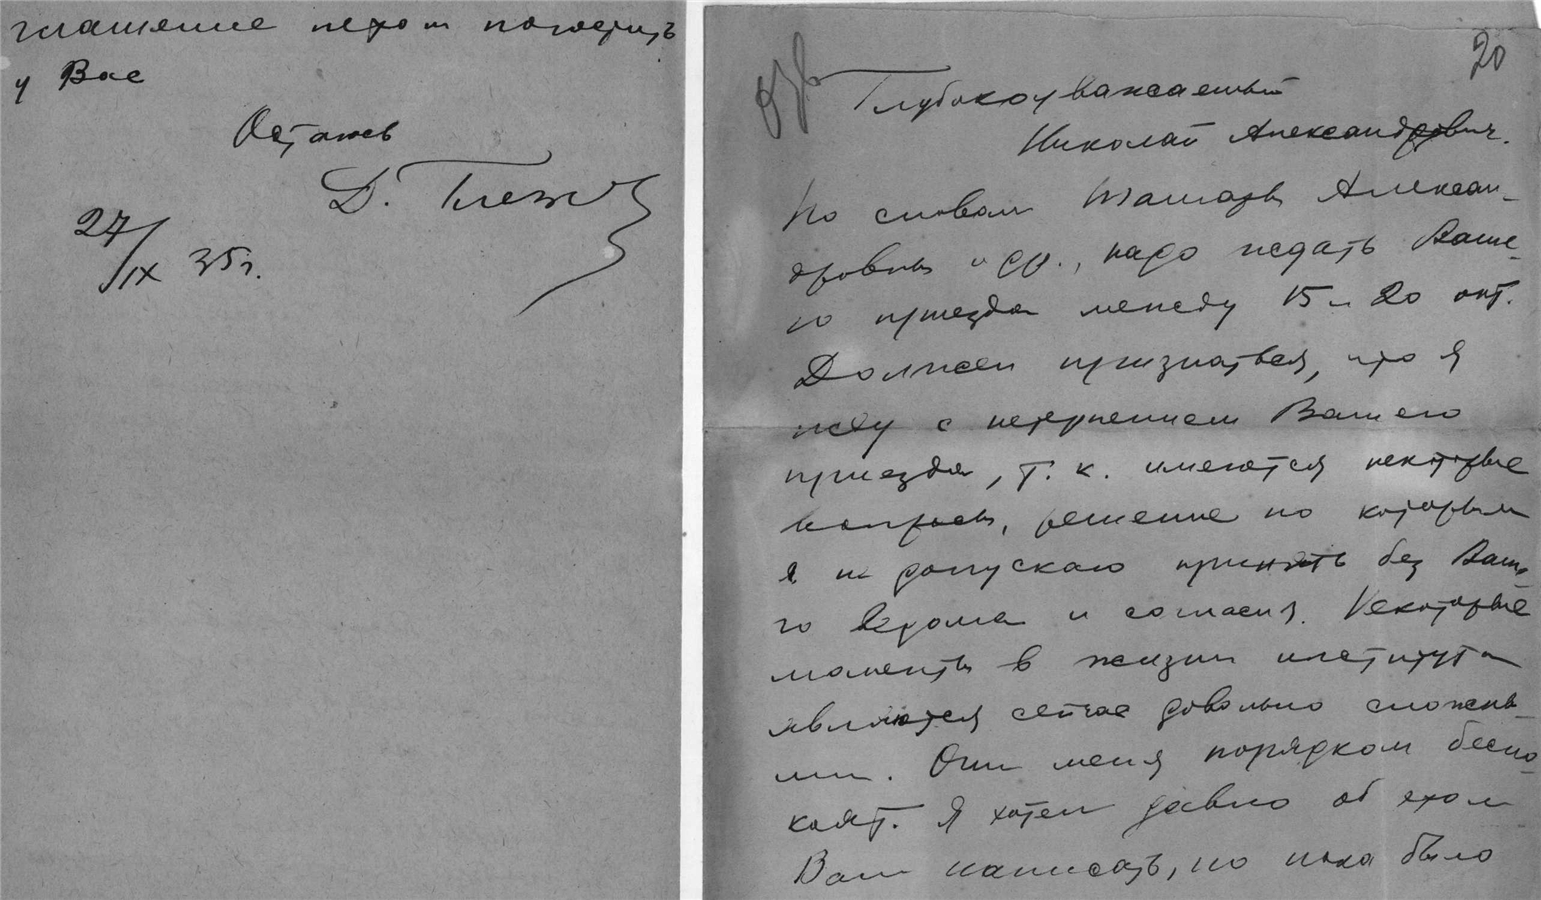 глашение летом погостить
у Вас
Остаюсь
Д.
27/IX 35 г.
20
Глубокоуважаемый
Николай Александрович.
По словам Тамары Алексан-
дровны и др., надо ждать Ваше-
го приезда между 15 и 20 окт.
Должен признаться, что я
жду с нетерпением Вашего
приезда, т. к. имеются некоторые
вопросы, решение по которым
я не допускаю принять без Ваше-
го ведома и согласия. Некоторые
моменты в жизни института
являются сейчас довольно сложны-
ми. Они меня порядком беспо-
коят. Я хотел давно об этом
Вам написать, но пока было